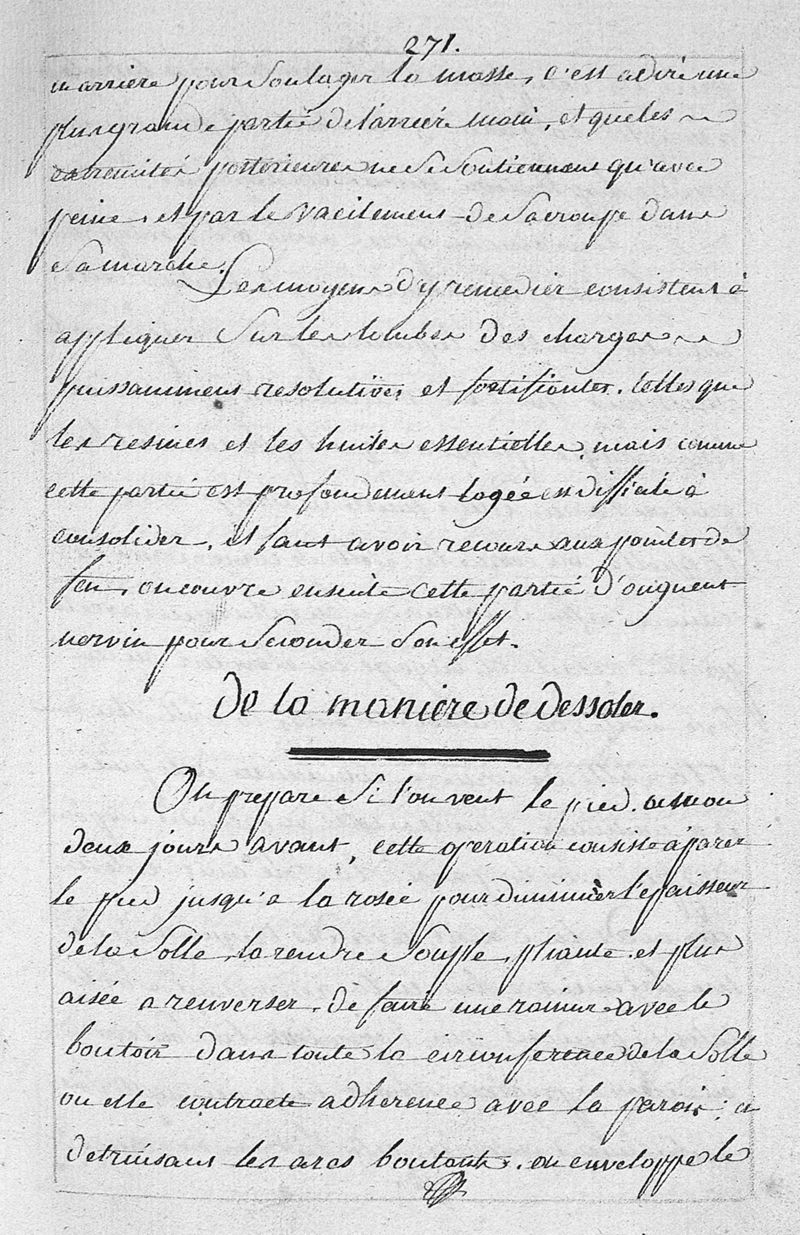 271.
en arriere pour Soulager la masse, c'est adire une
plus grande partie de l'arriere main, et que les
extremités posterieures ne Se Soutiennent qu'avec
peine, et par le vacilement de Sa croupe dans
Sa marche.
Les moyens d'y remedier consistent à
appliquer Sur les lombes des charges
puissamment resolutives et fortifiantes, telles que
les resines et les huiles essentielles, mais comme
cette partie est profondement logée et difficile à
consolider, il faut avoir recours aux pointes de
feu, on couvre ensuite cette partie d'onguent
nervin pour Seconder Son effet.
De la maniere de dessoler.
On prepare Si l'on veut le pied. un ou
deux jours avant, cette operation consiste à parer
le pied jusqu'a la rosée pour diminuer l'epaisseur
de la Solle, la rendre Souple, pliante et plus
aisée a renverser, de faire une rainure avec le
boutoir dans toute la circonference de la Solle
ou elle contracte adherence avec la paroi; a
detruisant les arcs boutants. on enveloppe le